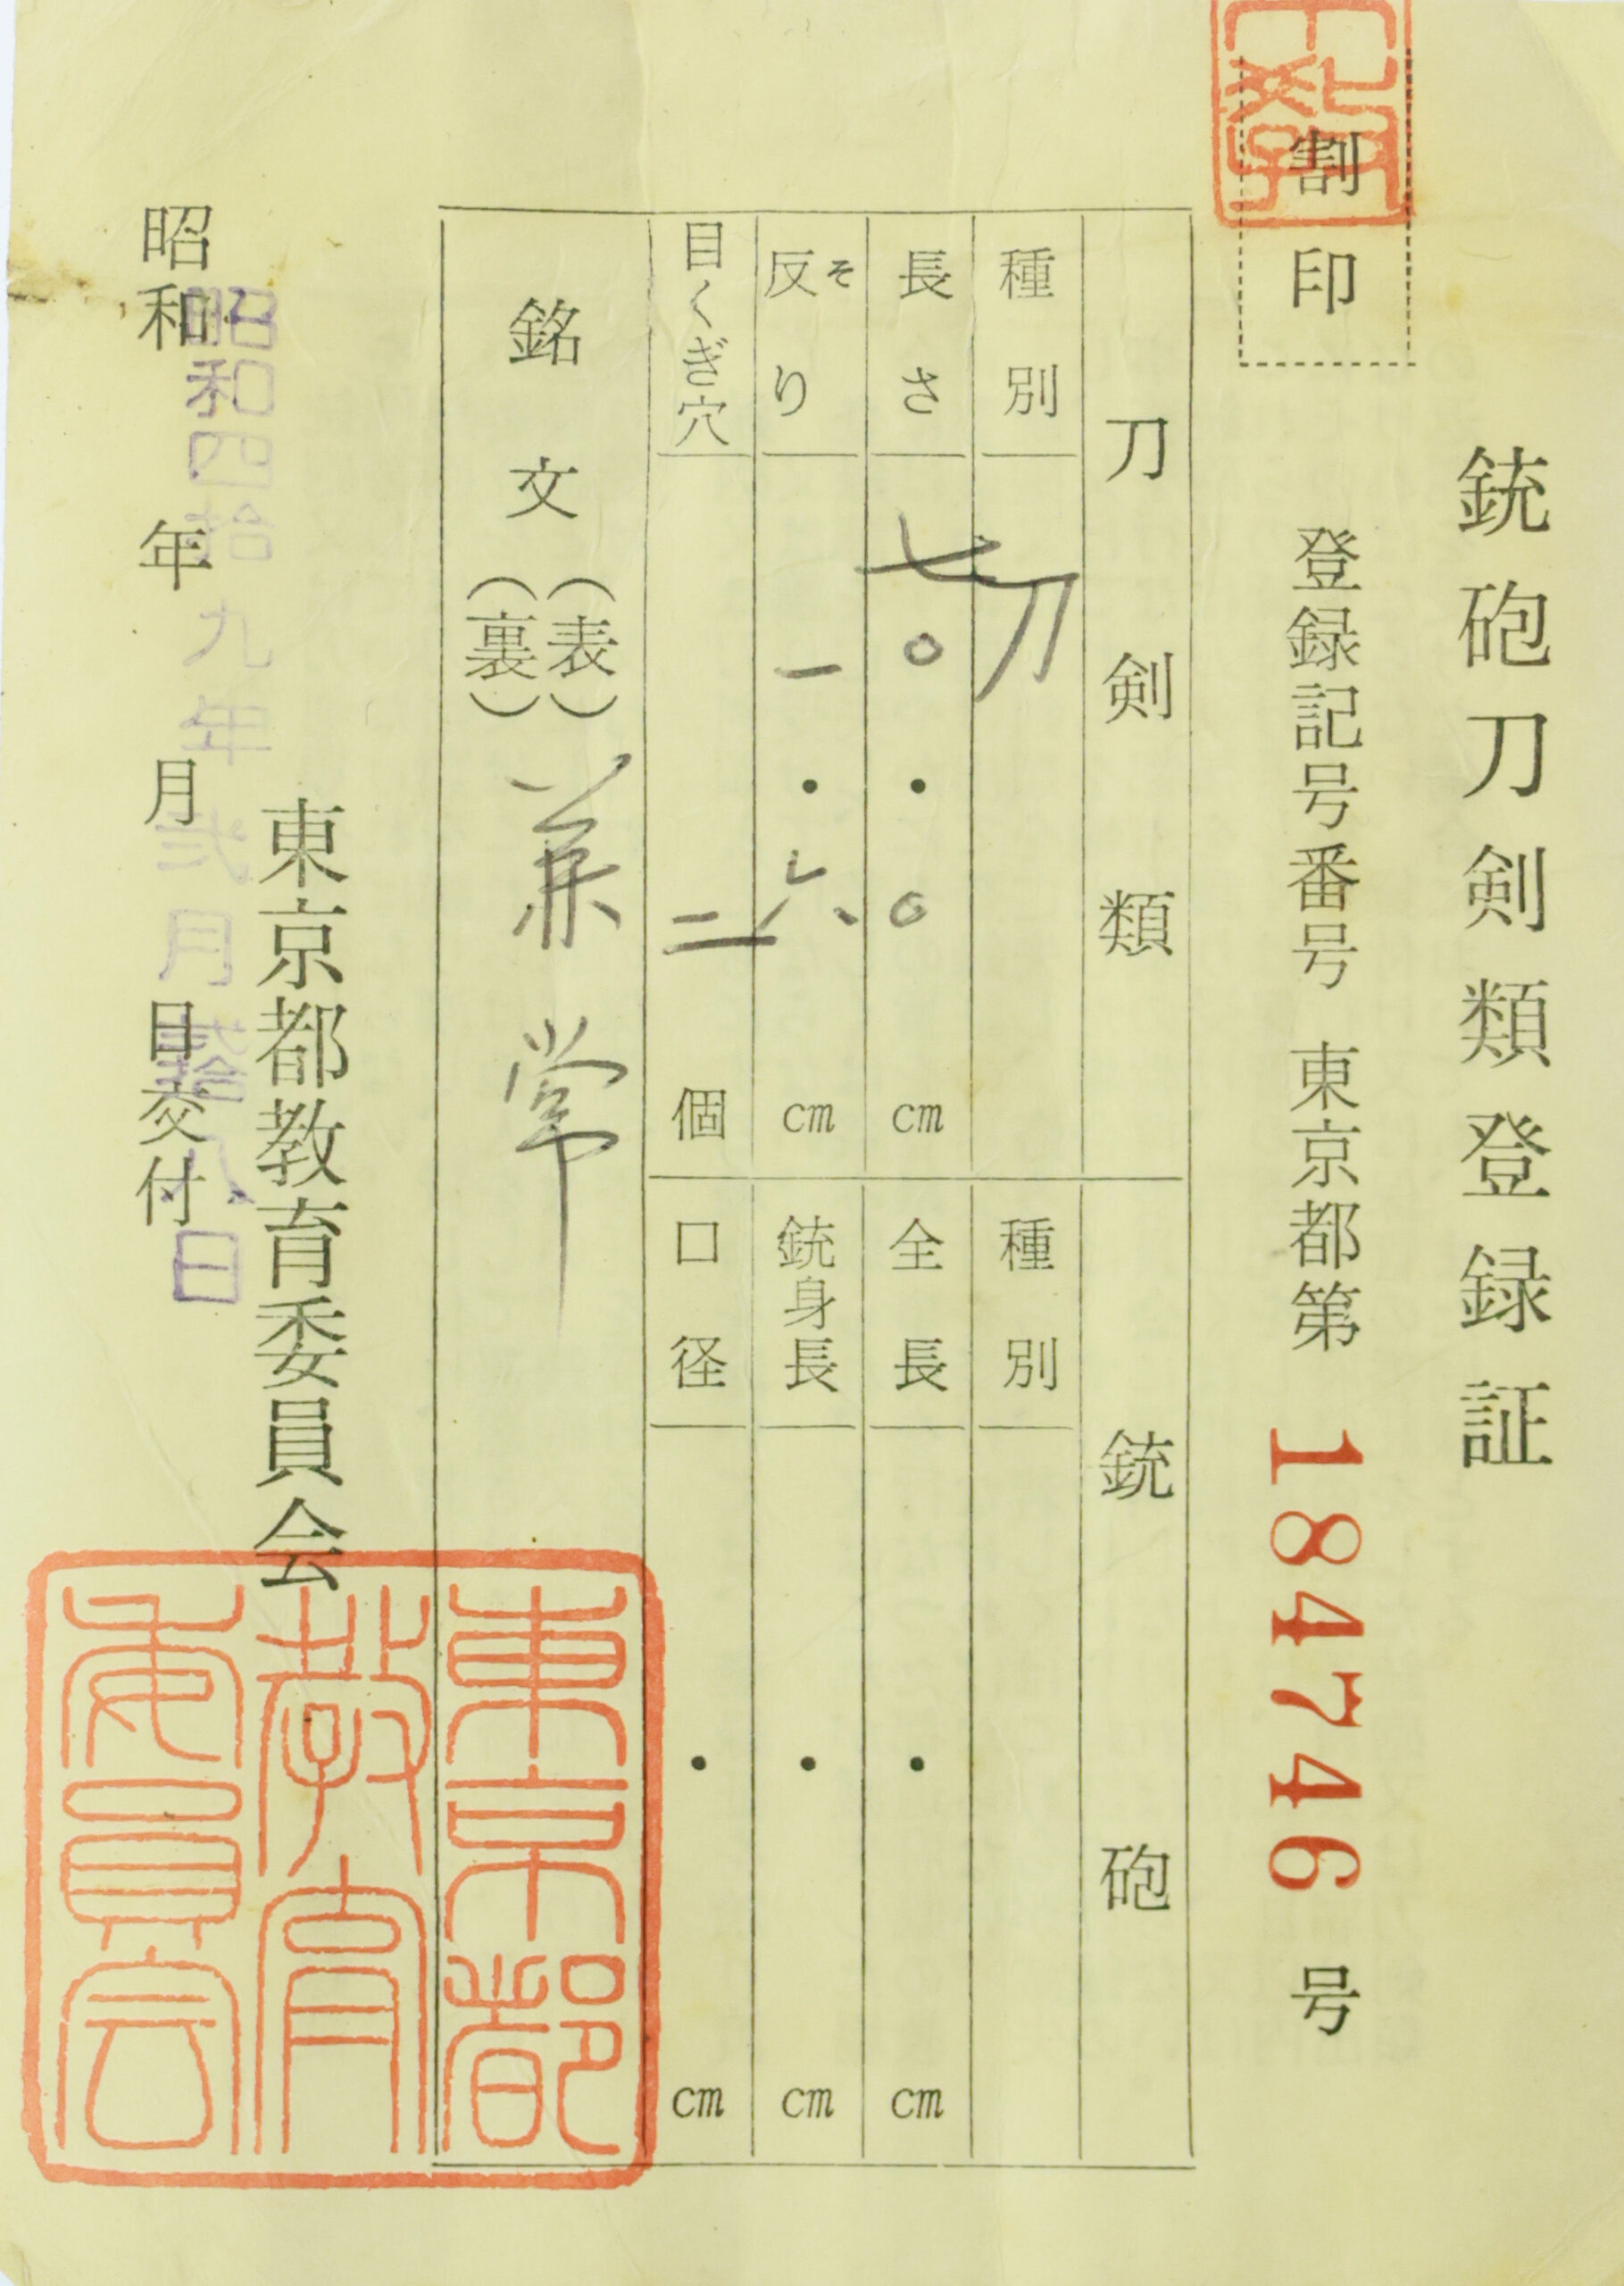 銃砲刀剣類登録証
割印
登録記号番号 東京都第 184746 号
刀剣類
銃砲
種別 刀
種別
長さ 七〇・〇 cm
全長 ・ cm
反り そ 一・六 cm
銃身長 ・ cm
目くぎ穴 二 個
口径 ・ cm
銘文(表)(裏) 兼常
東京都教育委員会
昭和 年 月 日交付
昭和四拾九年弐月弐拾八日
東京都
教育
委員会